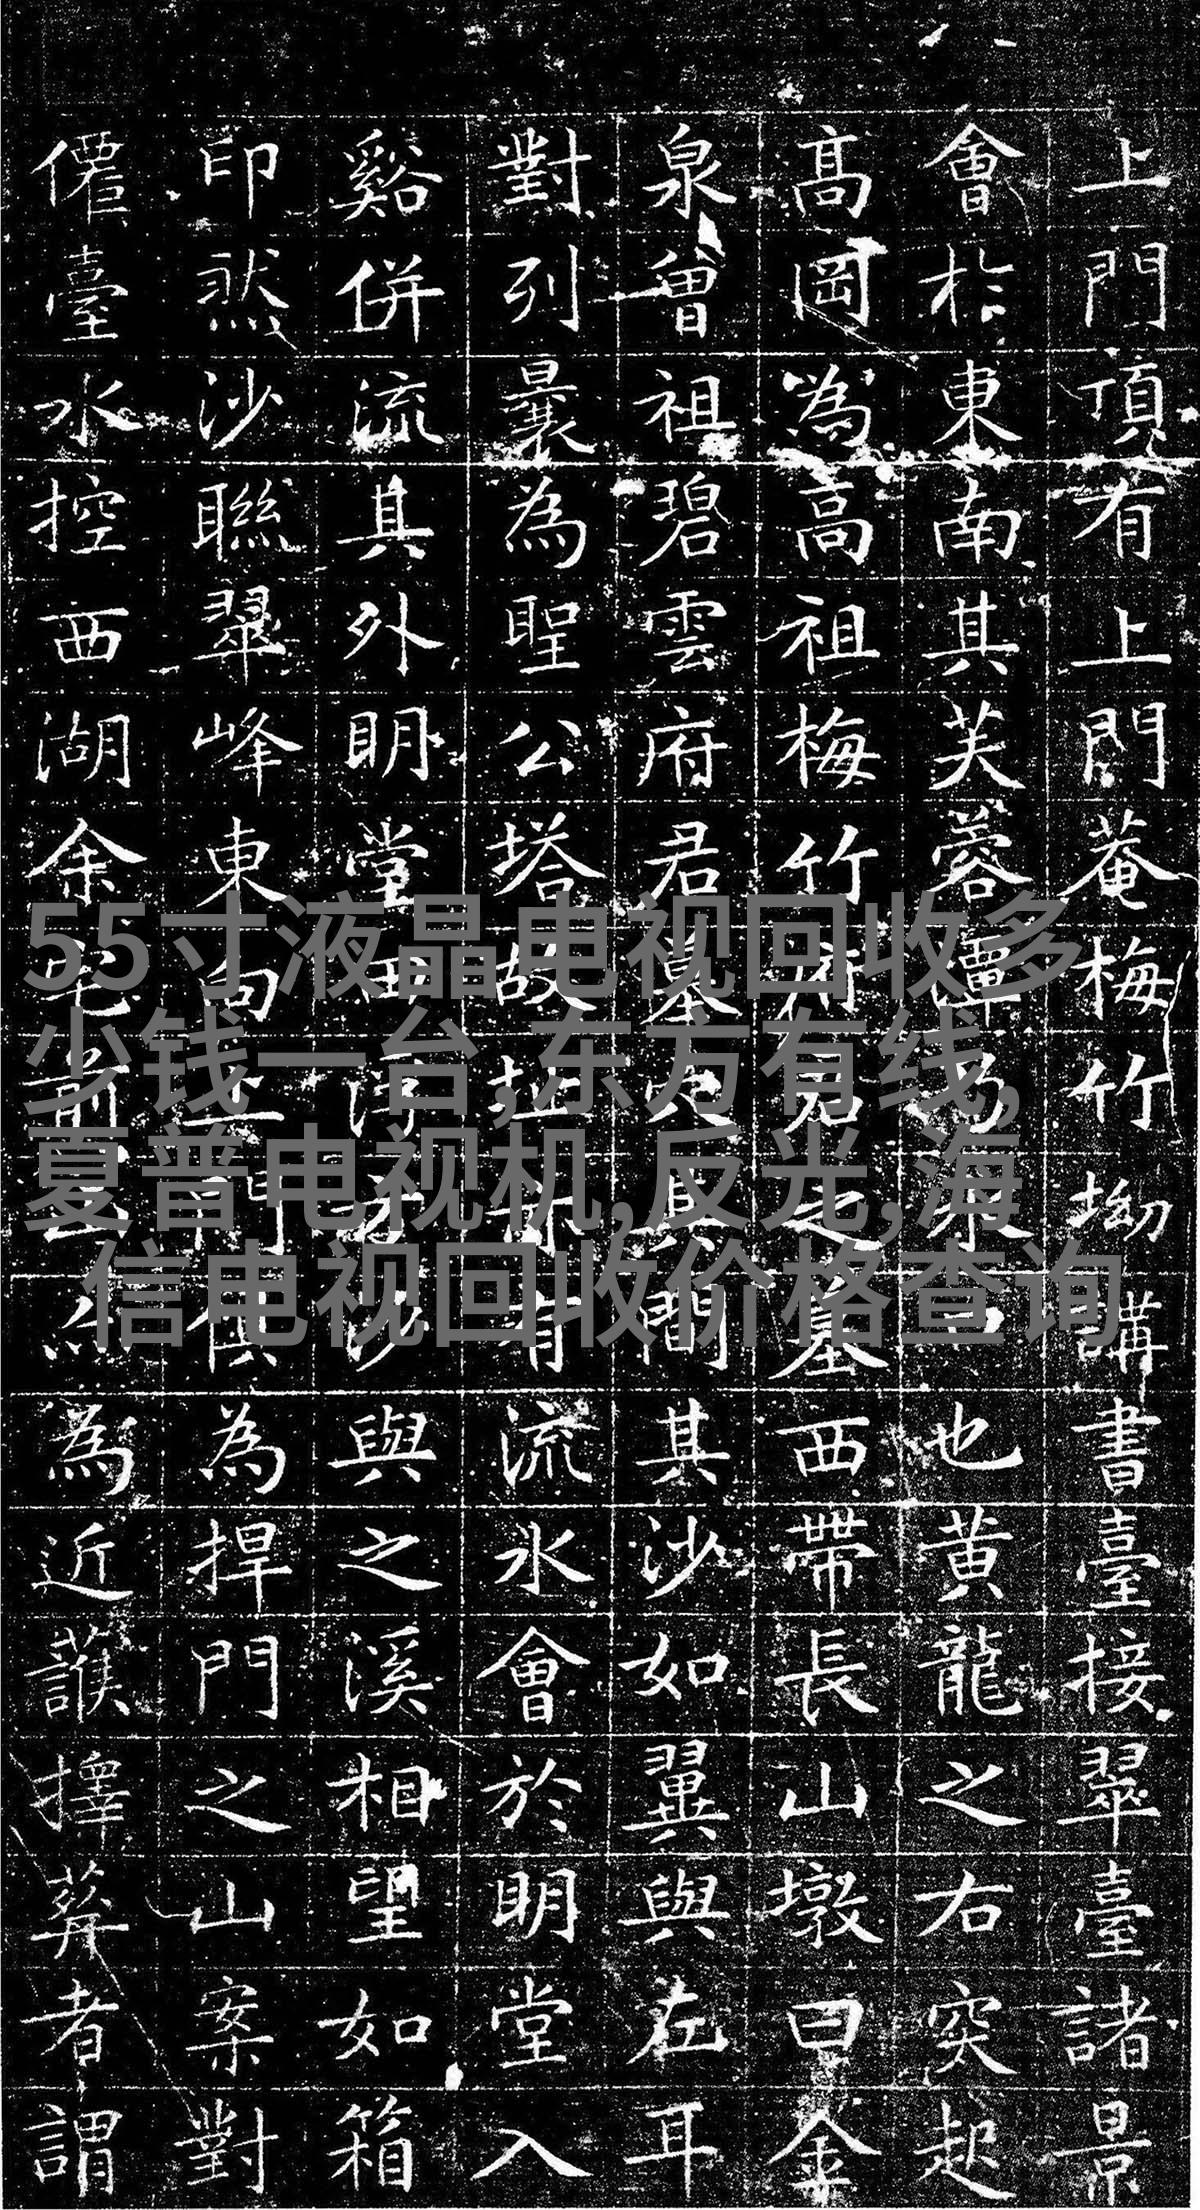 上門頂有上門菴梅竹坳講書臺接翠臺諸景
會於東南其芙蓉也黃龍之右突起
高岡為高祖梅竹府君之墓西帶長山墩曰金
泉曾祖碧雲府君墓穴其間其沙如翼與左耳
對列曩為聖公塔故址有流水會於明堂入
谿併流其外明堂田浮沙與之溪相望如箱
印然沙聯翠峰東向上門俱為捍門之山案對
僊臺水控西湖余宅前為近護擇葬者謂
55寸液晶电视回收多
少钱一台,东方有线,
夏普电视机,反光,海
信电视回收价格查询